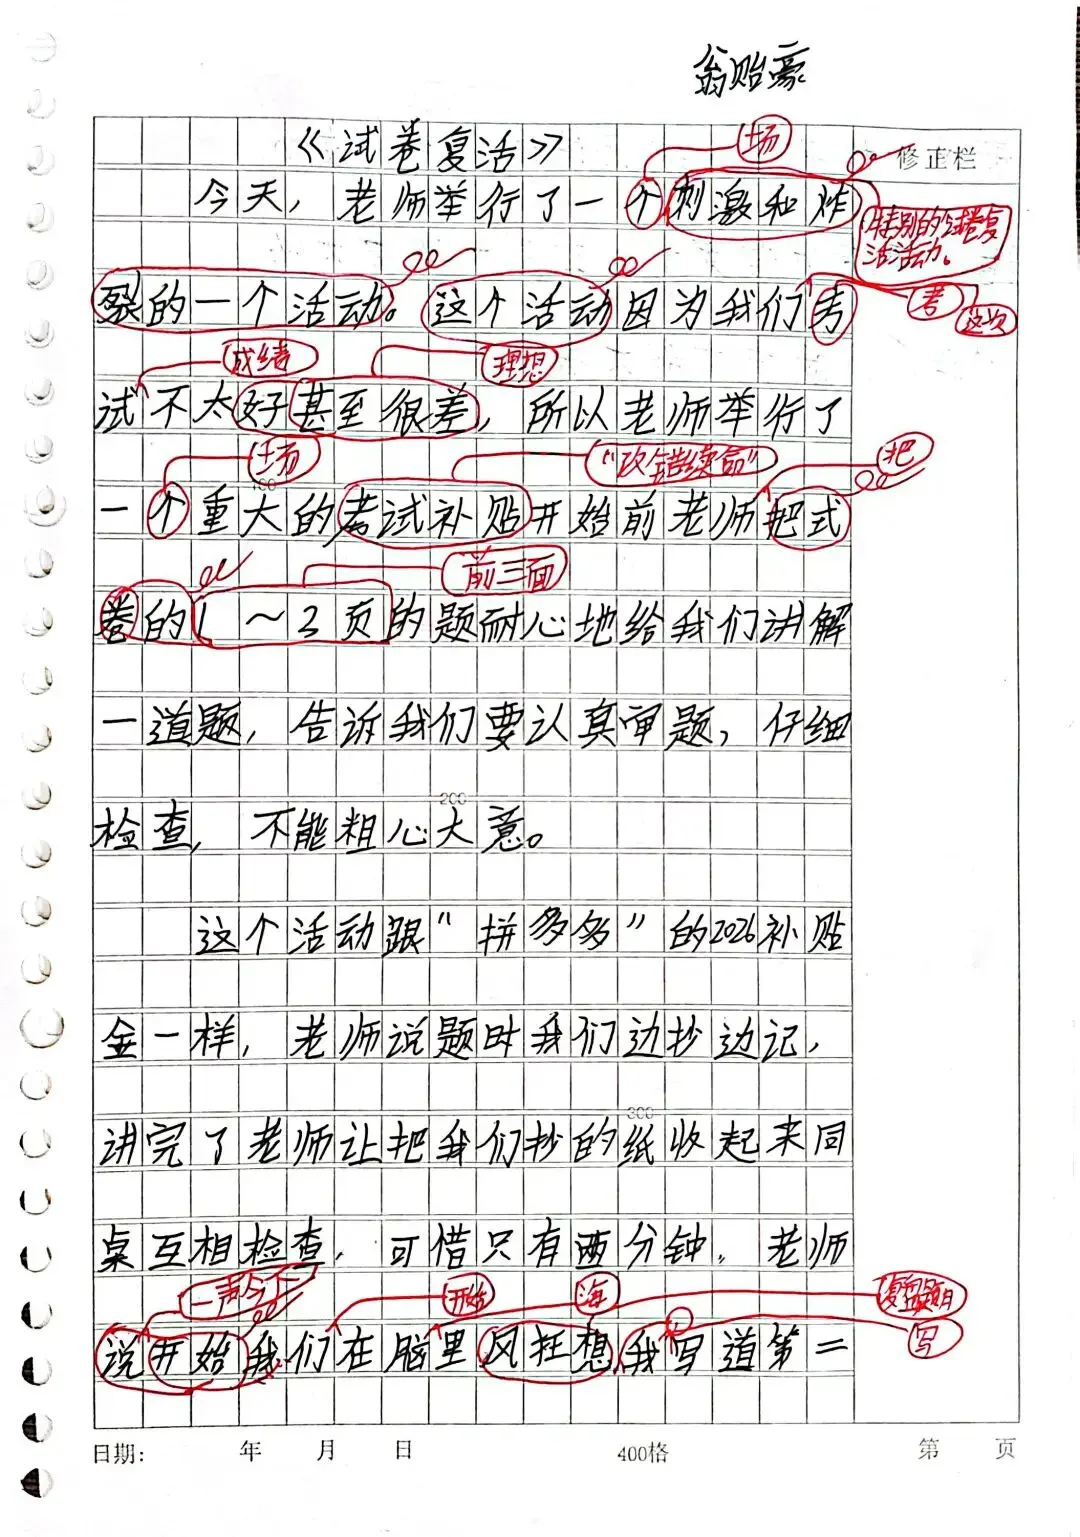 翁贻豪
《试卷复活》
场
修正栏
今天，老师举行了一个刺激和炸
特别的试卷复活活动。
裂的一个活动。这个活动因为我们考
考
这次
成绩
理想
试不太好甚至很差，所以老师举行了
场
"改错续命"
把
一个重大的考试补贴开始前老师把式
100
前三面
卷的1～3页的题耐心地给我们讲解
一道题，告诉我们要认真审题，仔细
200
检查，不能粗心大意。
这个活动跟"拼多多"的2026补贴
金一样，老师说题时我们边抄边记，
300
讲完了老师让把我们抄的纸收起来同
桌互相检查，可惜只有两分钟，老师
一声令下
开始
海
题目
写
说开始我们在脑里风狂想，我写道第二
日期： 年 月 日 400格 第 页